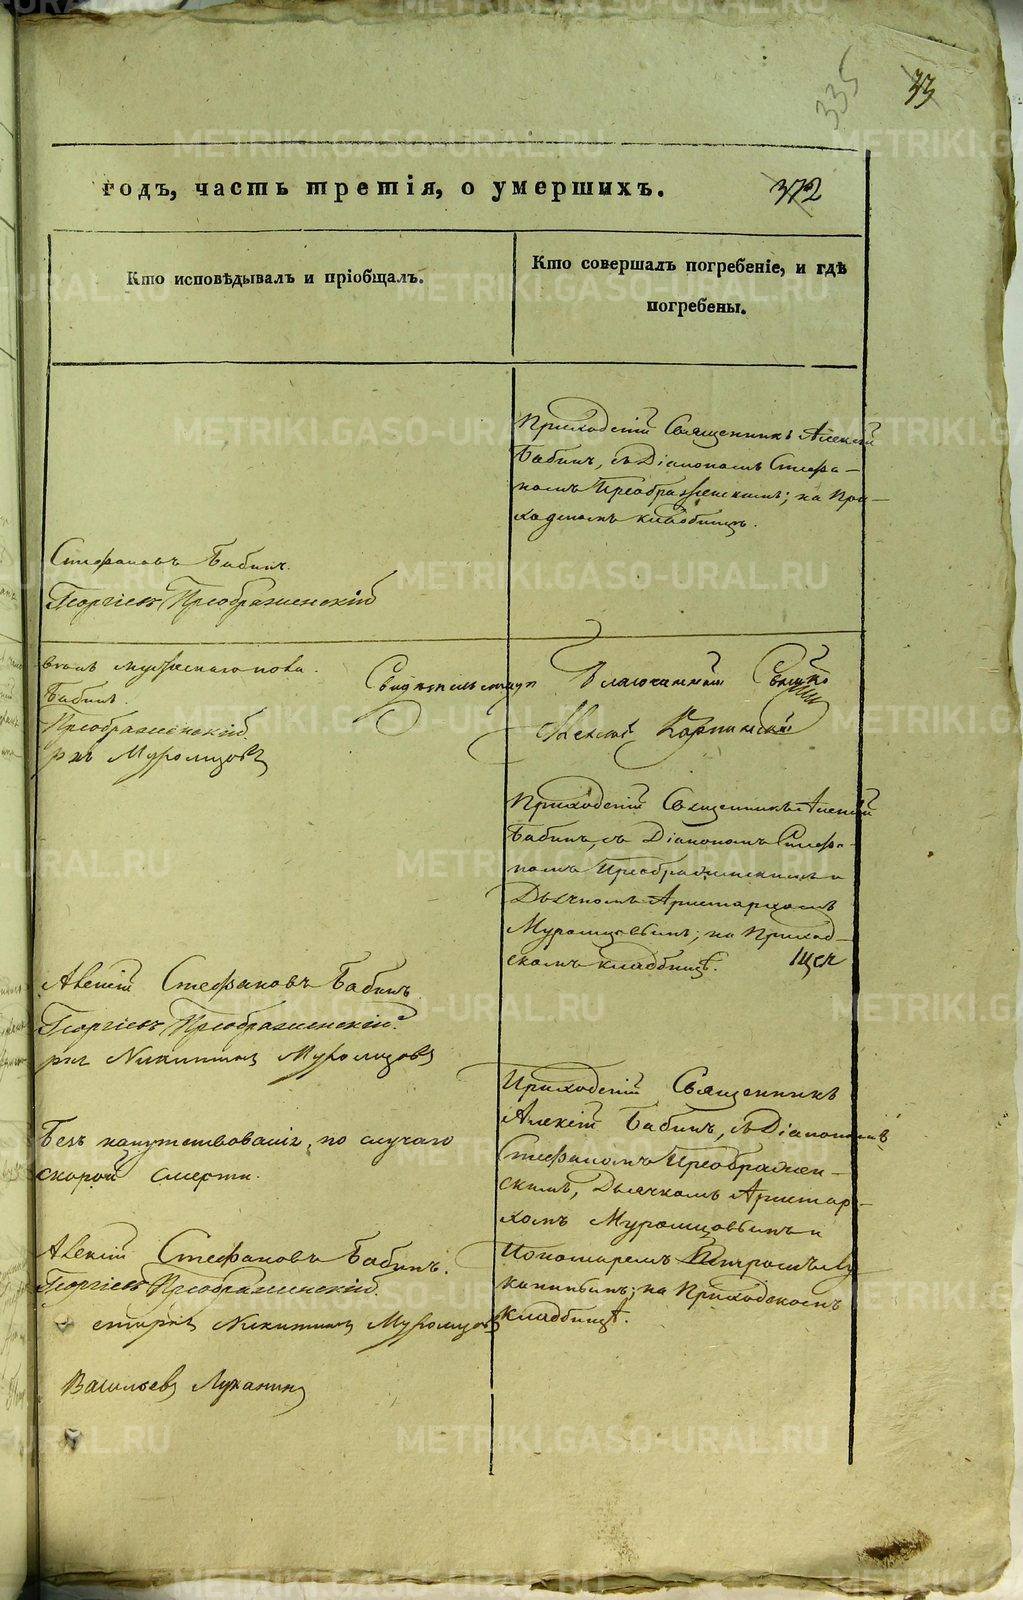 335
33
годъ, часть третія, о умершихъ.
372
Кто исповѣдывалъ и пріобщалъ.
Кто совершалъ погребеніе, и гдѣ
погребены.
Приходскій Священникъ Алексій
Бабинъ, съ Діакономъ Стефа-
номъ Преображенскимъ; на При-
ходскомъ кладбищѣ.
Стефановъ Бабинъ.
Георгіевъ Преображенскій
мужескаго пола.
Бабинъ.
Преображенскій
рхъ Муромцовъ
Свидѣтельствую
Благочинный
Алексій
Приходскій Священникъ Алексій
Бабинъ, съ Діакономъ Стефа-
номъ Преображенскимъ и
Дьячкомъ Аристархомъ
Муромцовымъ; на Приход-
скомъ кладбищѣ.
Алексій Стефановъ Бабинъ.
Георгіевъ Преображенскій.
рхъ Никитинъ Муромцовъ
Безъ напутствованія, по случаю
скорой смерти.
Приходскій Священникъ
Алексій Бабинъ, съ Діакономъ
Стефаномъ Преображен-
скимъ, Дьячкомъ Аристар-
хомъ Муромцовымъ и
Пономаремъ Петромъ Лу
канинымъ; на Приходскомъ
кладбищѣ.
Алексій Стефановъ Бабинъ.
Георгіевъ Преображенскій.
стархъ Никитинъ Муромцовъ
Васильевъ Луканинъ
METRIKI.GASO-URAL.RU